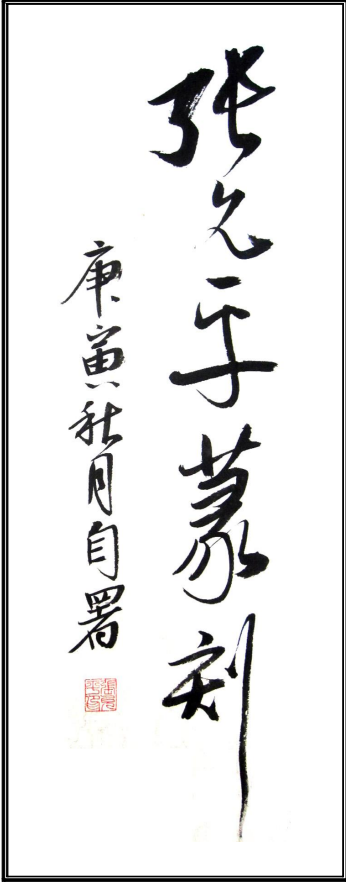 张允平篆刻
庚寅秋月自署